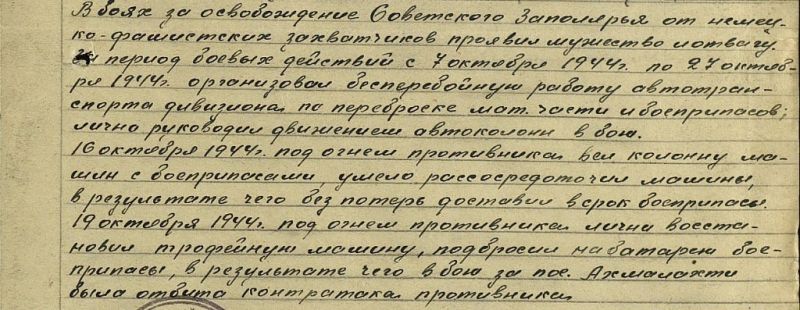 В боях за освобождение Советского Заполярья от немец-
ко-фашистских захватчиков проявил мужество и отвагу.
За период боевых действий с 7 октября 1944г. по 27 октяб-
ря 1944г. организовал бесперебойную работу автотран-
спорта дивизиона по переброске мат. части и боеприпасов;
лично руководил движением автоколонн в бою.
16 октября 1944г. под огнем противника вел колонну ма-
шин с боеприпасами, умело рассосредоточил машины,
в результате чего без потерь доставил в срок боеприпасы.
19 октября 1944г. под огнем противника лично восста-
новил трофейную машину, подбросил на батарею бое-
припасы, в результате чего в бою за пос. Ахмалахти
была отбита контратака противника